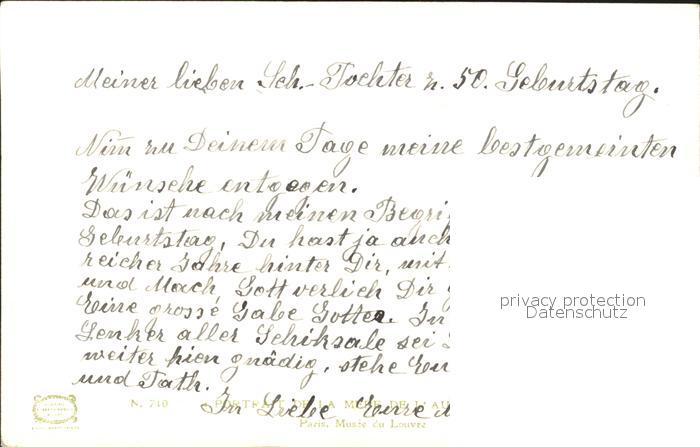 Meiner lieben Sch.-Tochter z. 50. Geburtstag.
Nim̄ zu Deinem Tage meine bestgemeinten
Wünsche entgegen.
Das ist nach meinen Begri
Geburtstag, Du hast ja auch
reicher Jahre hinter Dir, mit
und Mach, Gott verlich Dir
Eine grosse Gabe Gottes. In
Lenker aller Schiksale sei
weiter hien gnädig, stehe Eu
und Tath.
In Liebe Eurre
privacy protection
Datenschutz
N. 740 PORTRAIT DE LA MÈRE DE L'AU
Paris, Musée du Louvre